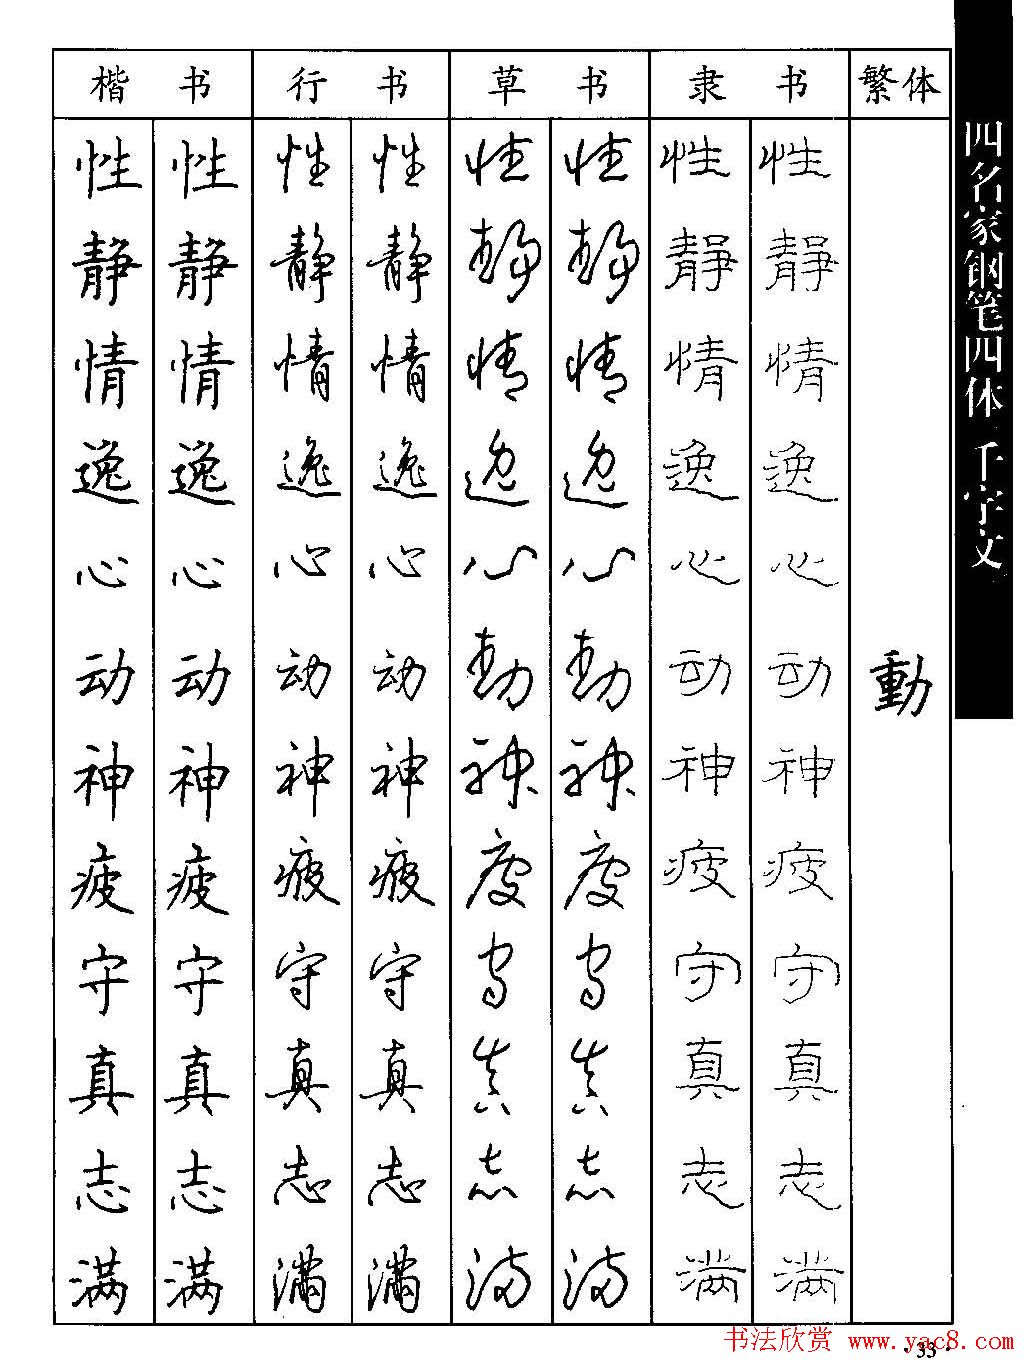 楷书 行书 草书 隶书 繁体
性 性 性 性 性 性 性 性
静 静 静 静 静 静 静 静
情 情 情 情 情 情 情 情
逸 逸 逸 逸 逸 逸 逸 逸
心 心 心 心 心 心 心 心
动 动 动 动 动 动 动 动 動
神 神 神 神 神 神 神 神
疲 疲 疲 疲 疲 疲 疲 疲
守 守 守 守 守 守 守 守
真 真 真 真 真 真 真 真
志 志 志 志 志 志 志 志
满 满 满 满 满 满 满 满
四名家钢笔四体千字文
书法欣赏 www.yac8.com
·33·